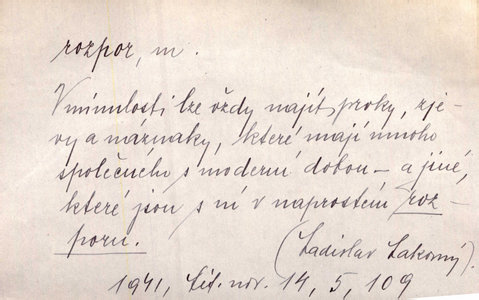 rozpor, m.
V minulosti lze vždy najít prvky, zje-
vy a náznaky, které mají mnoho
společného s moderní dobou – a jiné,
které jsou s ní v naprostém roz-
poru.
(Ladislav Lakomý).
1941, Lit. nov. 14, 5, 109